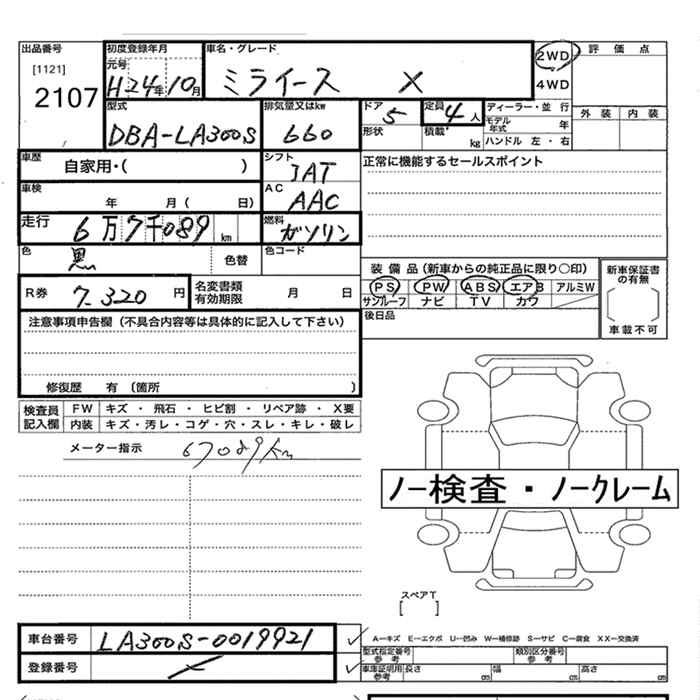 出品番号 初度登録年月 車名・グレード 2WD 評価点
[1121] 元号
2107 H24年10月 ミライース X 4WD
型式 排気量又はkw ドア 定員 ディーラー・並行 外装 内装
DBA-LA300S 660 5 4人 モデル年式 年
形状 積載 kg ハンドル 左・右
車歴 自家用・( ) シフト IAT 正常に機能するセールスポイント
車検 年 月( 日) AC AAC
走行 6万7千089km 燃料 ガソリン
色 黒 色替 色コード
装備品(新車からの純正品に限り〇印) 新車保証書の有無
R券 7-320円 名変書類有効期限 月 日 PS PW ABS エアB アルミW
サンルーフ ナビ TV カワ
注意事項申告欄(不具合内容等は具体的に記入して下さい) 後日品 車載不可
修復歴 有 (箇所 )
検査員記入欄 FW キズ・飛石・ヒビ割・リペア跡・X要
内装 キズ・汚レ・コゲ・穴・スレ・キレ・破レ
メーター指示 67089Km
ノー検査・ノークレーム
スペアT
[ ]
車台番号 LA300S-0019921 A-キズ E-エクボ U-凹み W-補修跡 S-サビ C-腐食 XX-交換済
型式指定番号 参考 類別区分番号 参考
登録番号 車庫証明用 参考 長さ 幅 高さ